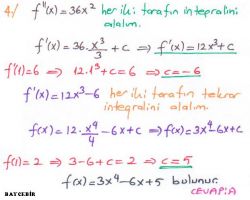 4./ f''(x)=36x² her iki tarafın integralini
alalım.
f'(x)=36.x³/3+c ⇒ f'(x)=12x³+c
f'(1)=6 ⇒ 12.1³+c=6 ⇒ c=-6
f'(x)=12x³-6 her iki tarafın tekrar
integralini alalım.
f(x)=12.x⁴/4-6x+c ⇒ f(x)=3x⁴-6x+c
f(1)=2 ⇒ 3-6+c=2 ⇒ c=5
f(x)=3x⁴-6x+5 bulunur.
CEVAP:A
BAYCEBİR